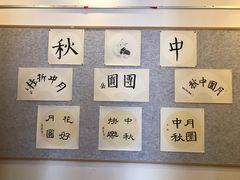 中
秋
月圓中秋
團圓
月中折桂
月圓
中秋
中秋
快樂
花好
月圓